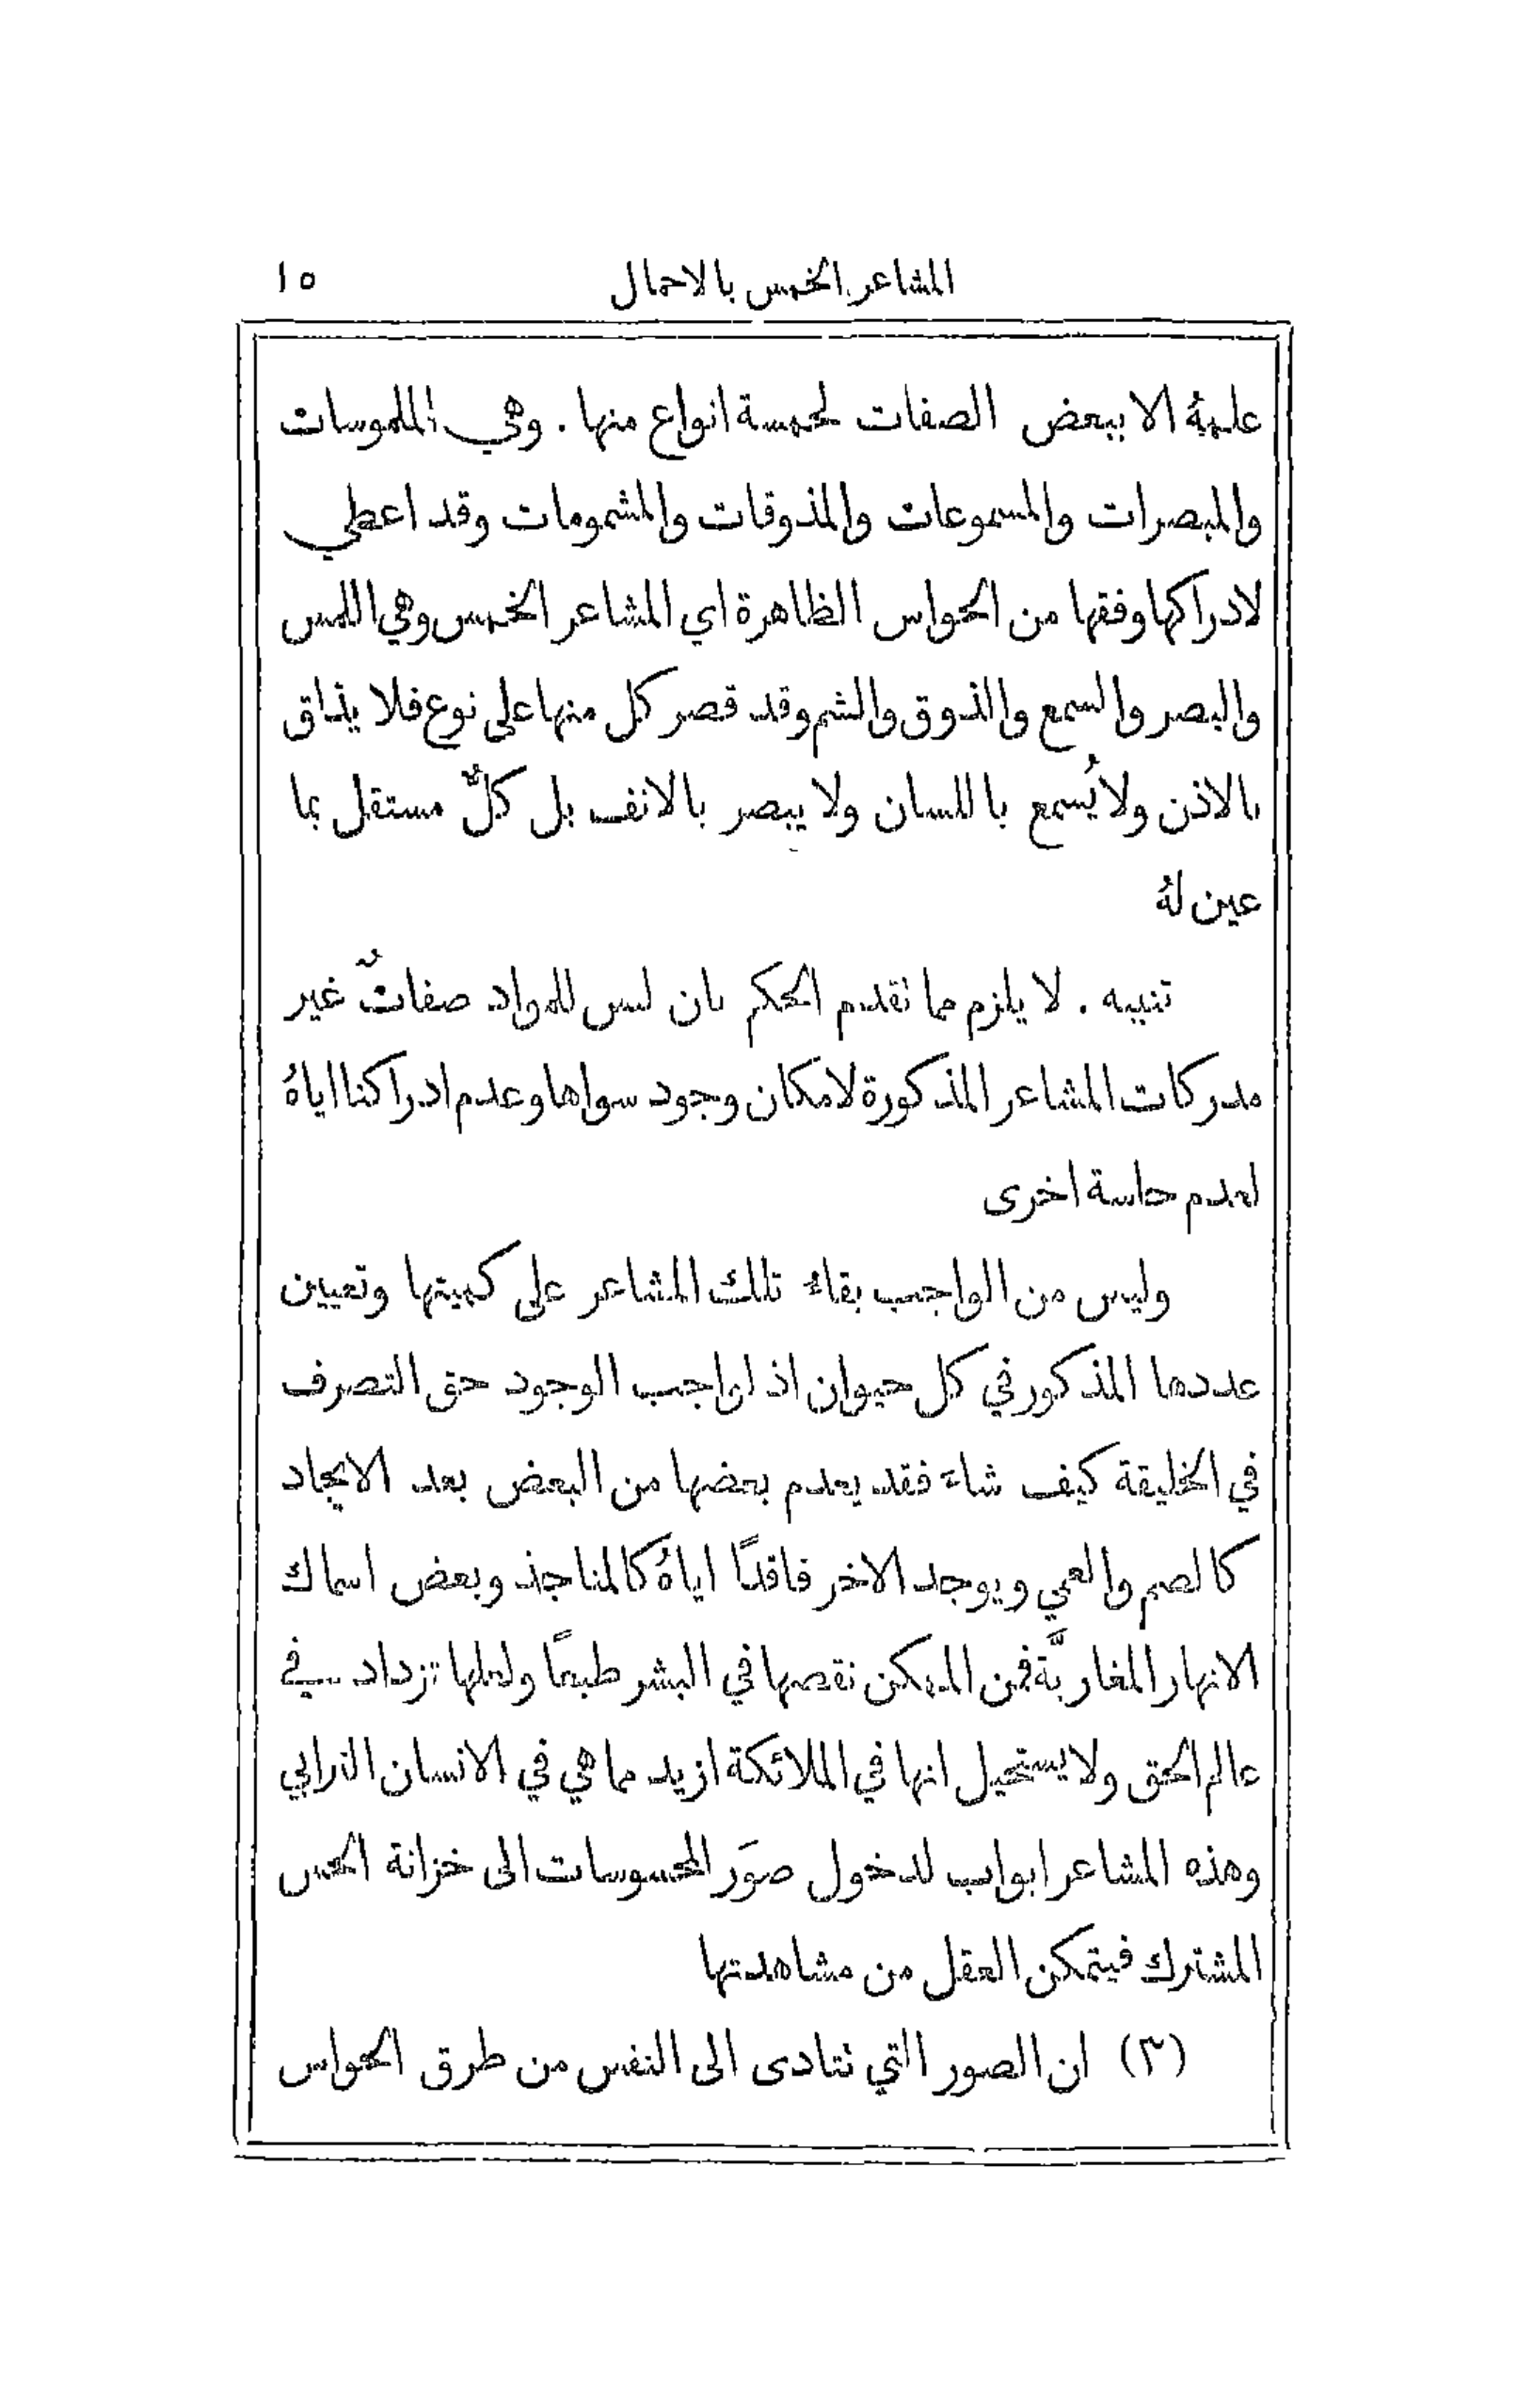 المشاعر الخمس بالاجمال ١٥
عليهِ الا ببعض الصفات لخمسة انواع منها . وهي الملموسات
والمبصرات والمسموعات والمذوقات والمشمومات وقد اعطي
لادراكها وفقها من الحواس الظاهرة اي المشاعر الخمس وهي اللمس
والبصر والسمع والذوق والشم وقد قصر كل منها على نوع فلا يذاق
بالاذن ولا يُسمع باللسان ولا يبصر بالانف بل كلٌّ مستقل بما
عين لهُ
تنبيه . لا يلزم مما تقدم الحكم بان ليس للمواد صفاتٌ غير
مدركات المشاعر المذكورة لامكان وجود سواها وعدم ادراكنا اياهُ
لعدم حاسة اخرى
وليس من الواجب بقاء تلك المشاعر على كميتها وتعيين
عددها المذكور في كل حيوان اذ لواجب الوجود حق التصرف
في الخليقة كيف شاء فقد يعدم بعضها من البعض بعد الايجاد
كالصم والعمي ويوجد الاخر فاقدًا اياهُ كالمناجذ وبعض اسماك
الانهار المغاريَّة فمن الممكن نقصها في البشر طبعًا ولعلها تزداد في
عالم الحق ولا يستحيل انها في الملائكة ازيد مما هي في الانسان الترابي
وهذه المشاعر ابواب لدخول صوَر المحسوسات الى خزانة الحس
المشترك فيتمكن العقل من مشاهدتها
(٣) ان الصور التي تتادى الى النفس من طرق الحواس